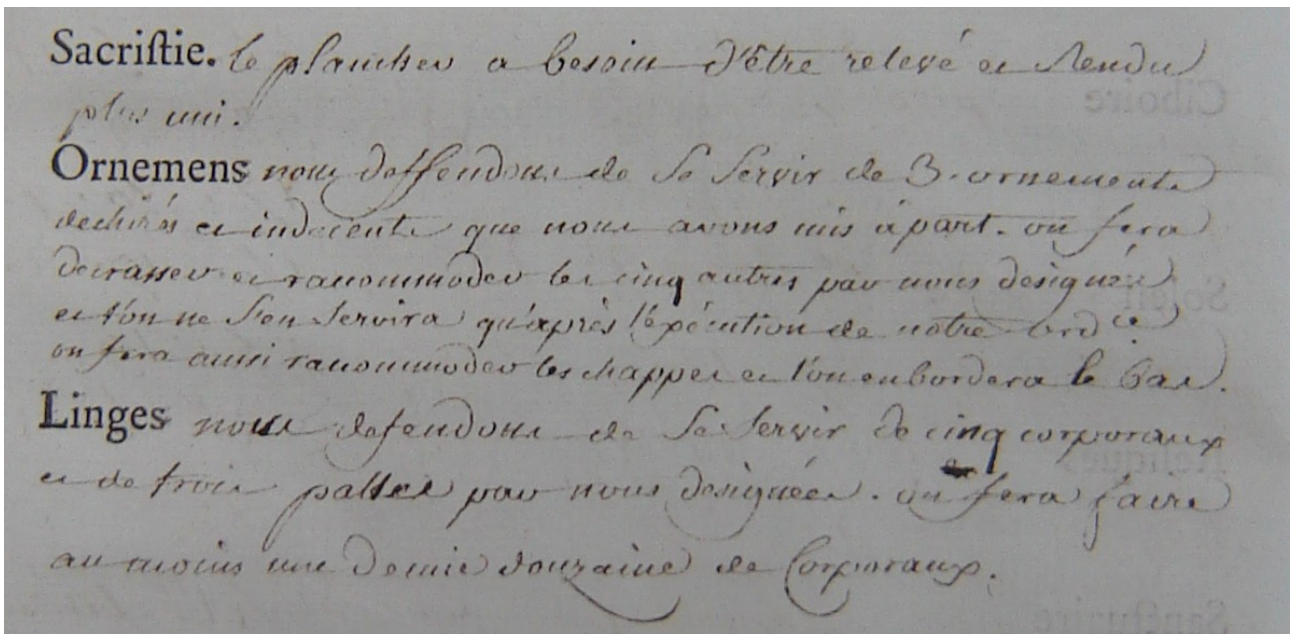 Sacristie. le plancher a besoin d'être relevé et rendu
plus uni.
Ornemens nous deffendons de se servir de 3. ornements
dechirés et indecents que nous avons mis à part. on fera
decrasser et racommoder les cinq autres par nous designés
et l'on ne s'en servira qu'après l'éxécution de notre ord.ce
on fera aussi racommoder les chappes et l'on en bordera le bas.
Linges nous defendons de se servir de cinq corporaux
et de trois palles par nous designées. on fera faire
au moins une demie douzaine de Corporaux.